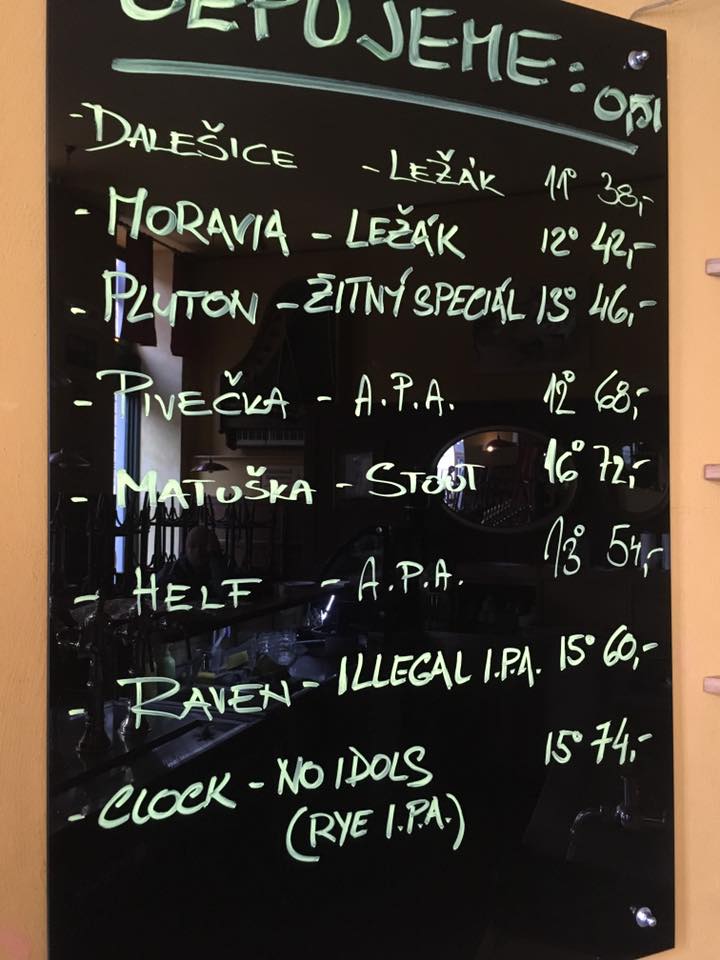 ČEPUJEME: 0,5l
- DALEŠICE - LEŽÁK 11° 38,-
- MORAVIA - LEŽÁK 12° 42,-
- PLUTON - ŽITNÝ SPECIÁL 13° 46,-
- PIVEČKA - A.P.A. 12° 68,-
- MATUŠKA - STOUT 16° 72,-
- HELF - A.P.A. 13° 54,-
- RAVEN - ILLEGAL I.P.A. 15° 60,-
- CLOCK - NO IDOLS 15° 74,-
(RYE I.P.A.)